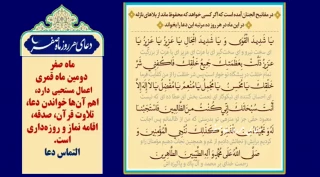 دعای هر روز ماه صفر
ماه صفر
دومین ماه قمری
اعمال مستحبی دارد،
اهم آن‌ها خواندن دعا،
تلاوت قرآن، صدقه،
اقامه نماز و روزه‌داری
است.
التماس دعا
در مفاتیح الجنان آمده است که اگر کسی خواهد که محفوظ ماند از بلاهای نازله
در این ماه در هر روز ده مرتبه این دعا را بخواند
یا شَدیدَ الْقُوی وَ یا شَدیدَ الْمِحالِ یا عَزیزُ یا عَزیزُ یا
عَزیزُ ذَلَّتْ بِعَظَمَتِکَ جَمیعُ خَلْقِکَ فَاکْفِنی شَرَّ
خَلْقِکَ یا مُحْسِنُ یا مُجْمِلُ یا مُنْعِمُ یا مُفْضِلُ یا لا اِلهَ اِلاّ
اَنْتَ سُبْحانَکَ اِنّی کُنْتُ مِنَ الظّالِمینَ فَاسْتَجَبْنا
لَهُ وَ نَجَّیْناهُ مِنَ الْغَمِّ وَ کَذلِکَ نُنْجِی الْمُؤْمِنینَ وَ
صَلَّی اللهُ عَلی مُحَمَّدٍ وَ آلِهِ الطَّیِّبینَ الطّاهِرینَ